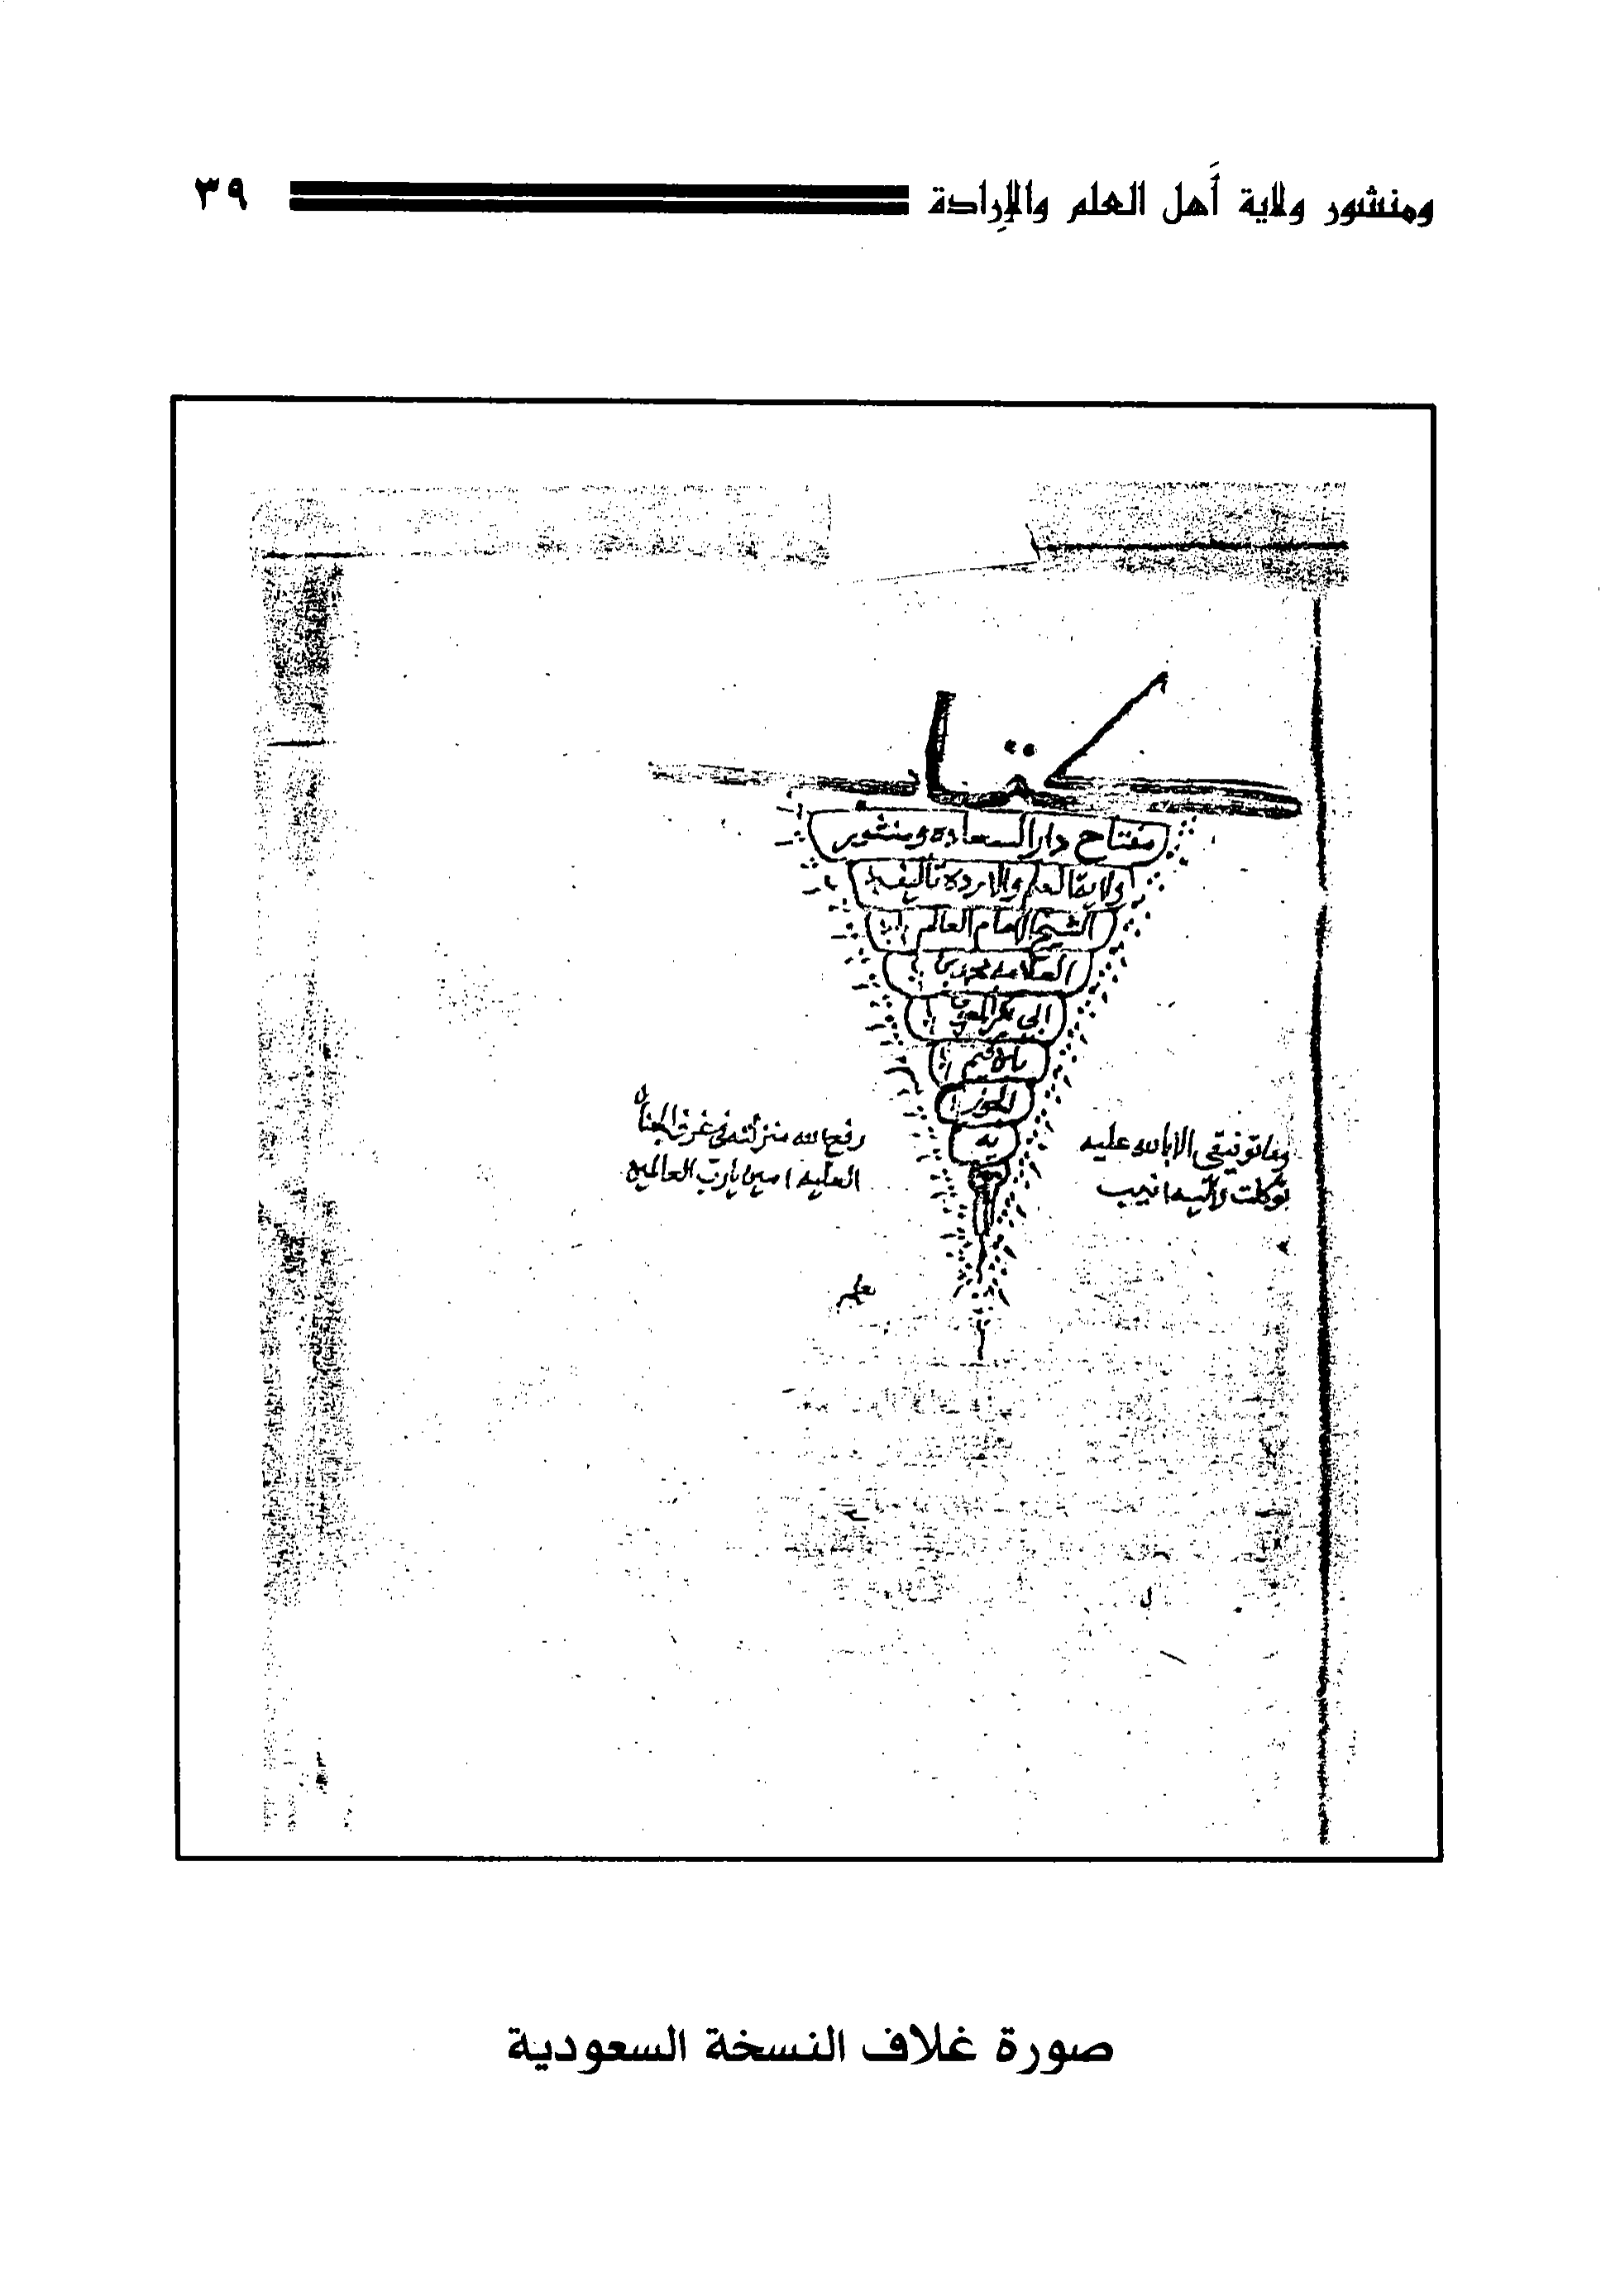 ومنشور ولاية أَهل العلم والإِرادة ٣٩
كتاب
مفتاح دار السعاده ومنشور
ولاية العلم والارده تاليف
الشيخ الامام العالم
العلامه محمد بن
ابي بكر المعروف
بابن قيم
الجوز
يه
وما توفيقي الا بالله عليه
توكلت واليه انيب
رفع الله منزلته في غرف الجنان
العليه امين يا رب العالمين
صورة غلاف النسخة السعودية